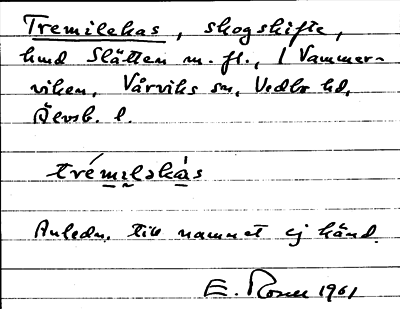 Tremilekas, skogskifte,
hmd Slätten m. fl., i Vammer-
viken, Vårviks sn, Vedbo hd,
Älvsb. l.
trémiləkàs
Anledn. till namnet ej känd.
E. Rosell 1961